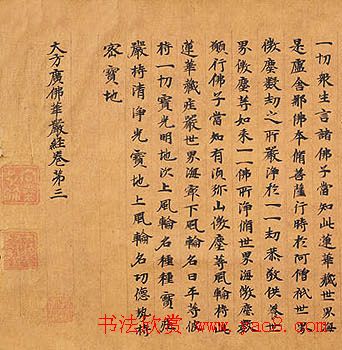 一切眾生言諸佛子當知此蓮華藏世界海
是盧舍那佛本脩菩薩行時於阿僧祇世界
微塵數劫之所嚴淨於一一劫恭敬供養世
界微塵等如來一一佛所淨脩世界海微塵數
願行佛子當知有須彌山微塵等風輪持此
蓮華藏莊嚴世界海最下風輪名曰平等彼
持一切寶光明地次上風輪名種種寶莊
嚴持清淨光寶地上風輪名功德勢持
密寶地
大方廣佛華嚴經卷第三
书法欣赏 www.yac8.com